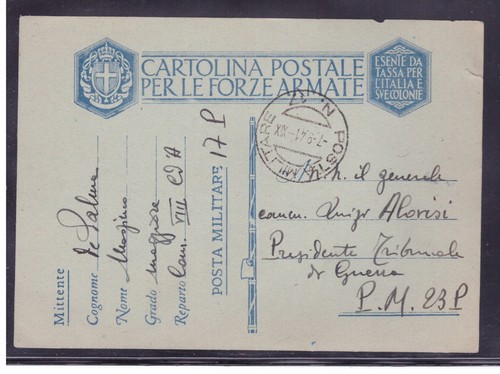 CARTOLINA POSTALE
PER LE FORZE ARMATE
ESENTE DA
TASSA PER
L'ITALIA E
SVE COLONIE
POSTA MILITARE N.
-7-9-41-XIX
Mittente
Cognome de Palma
Nome
Grado maggiore
Reparto Com. VIII CdA
POSTA MILITARE 17 P
il generale
Luigi Aloisi
Presidente Tribunale
di Guerra
P.M. 23P